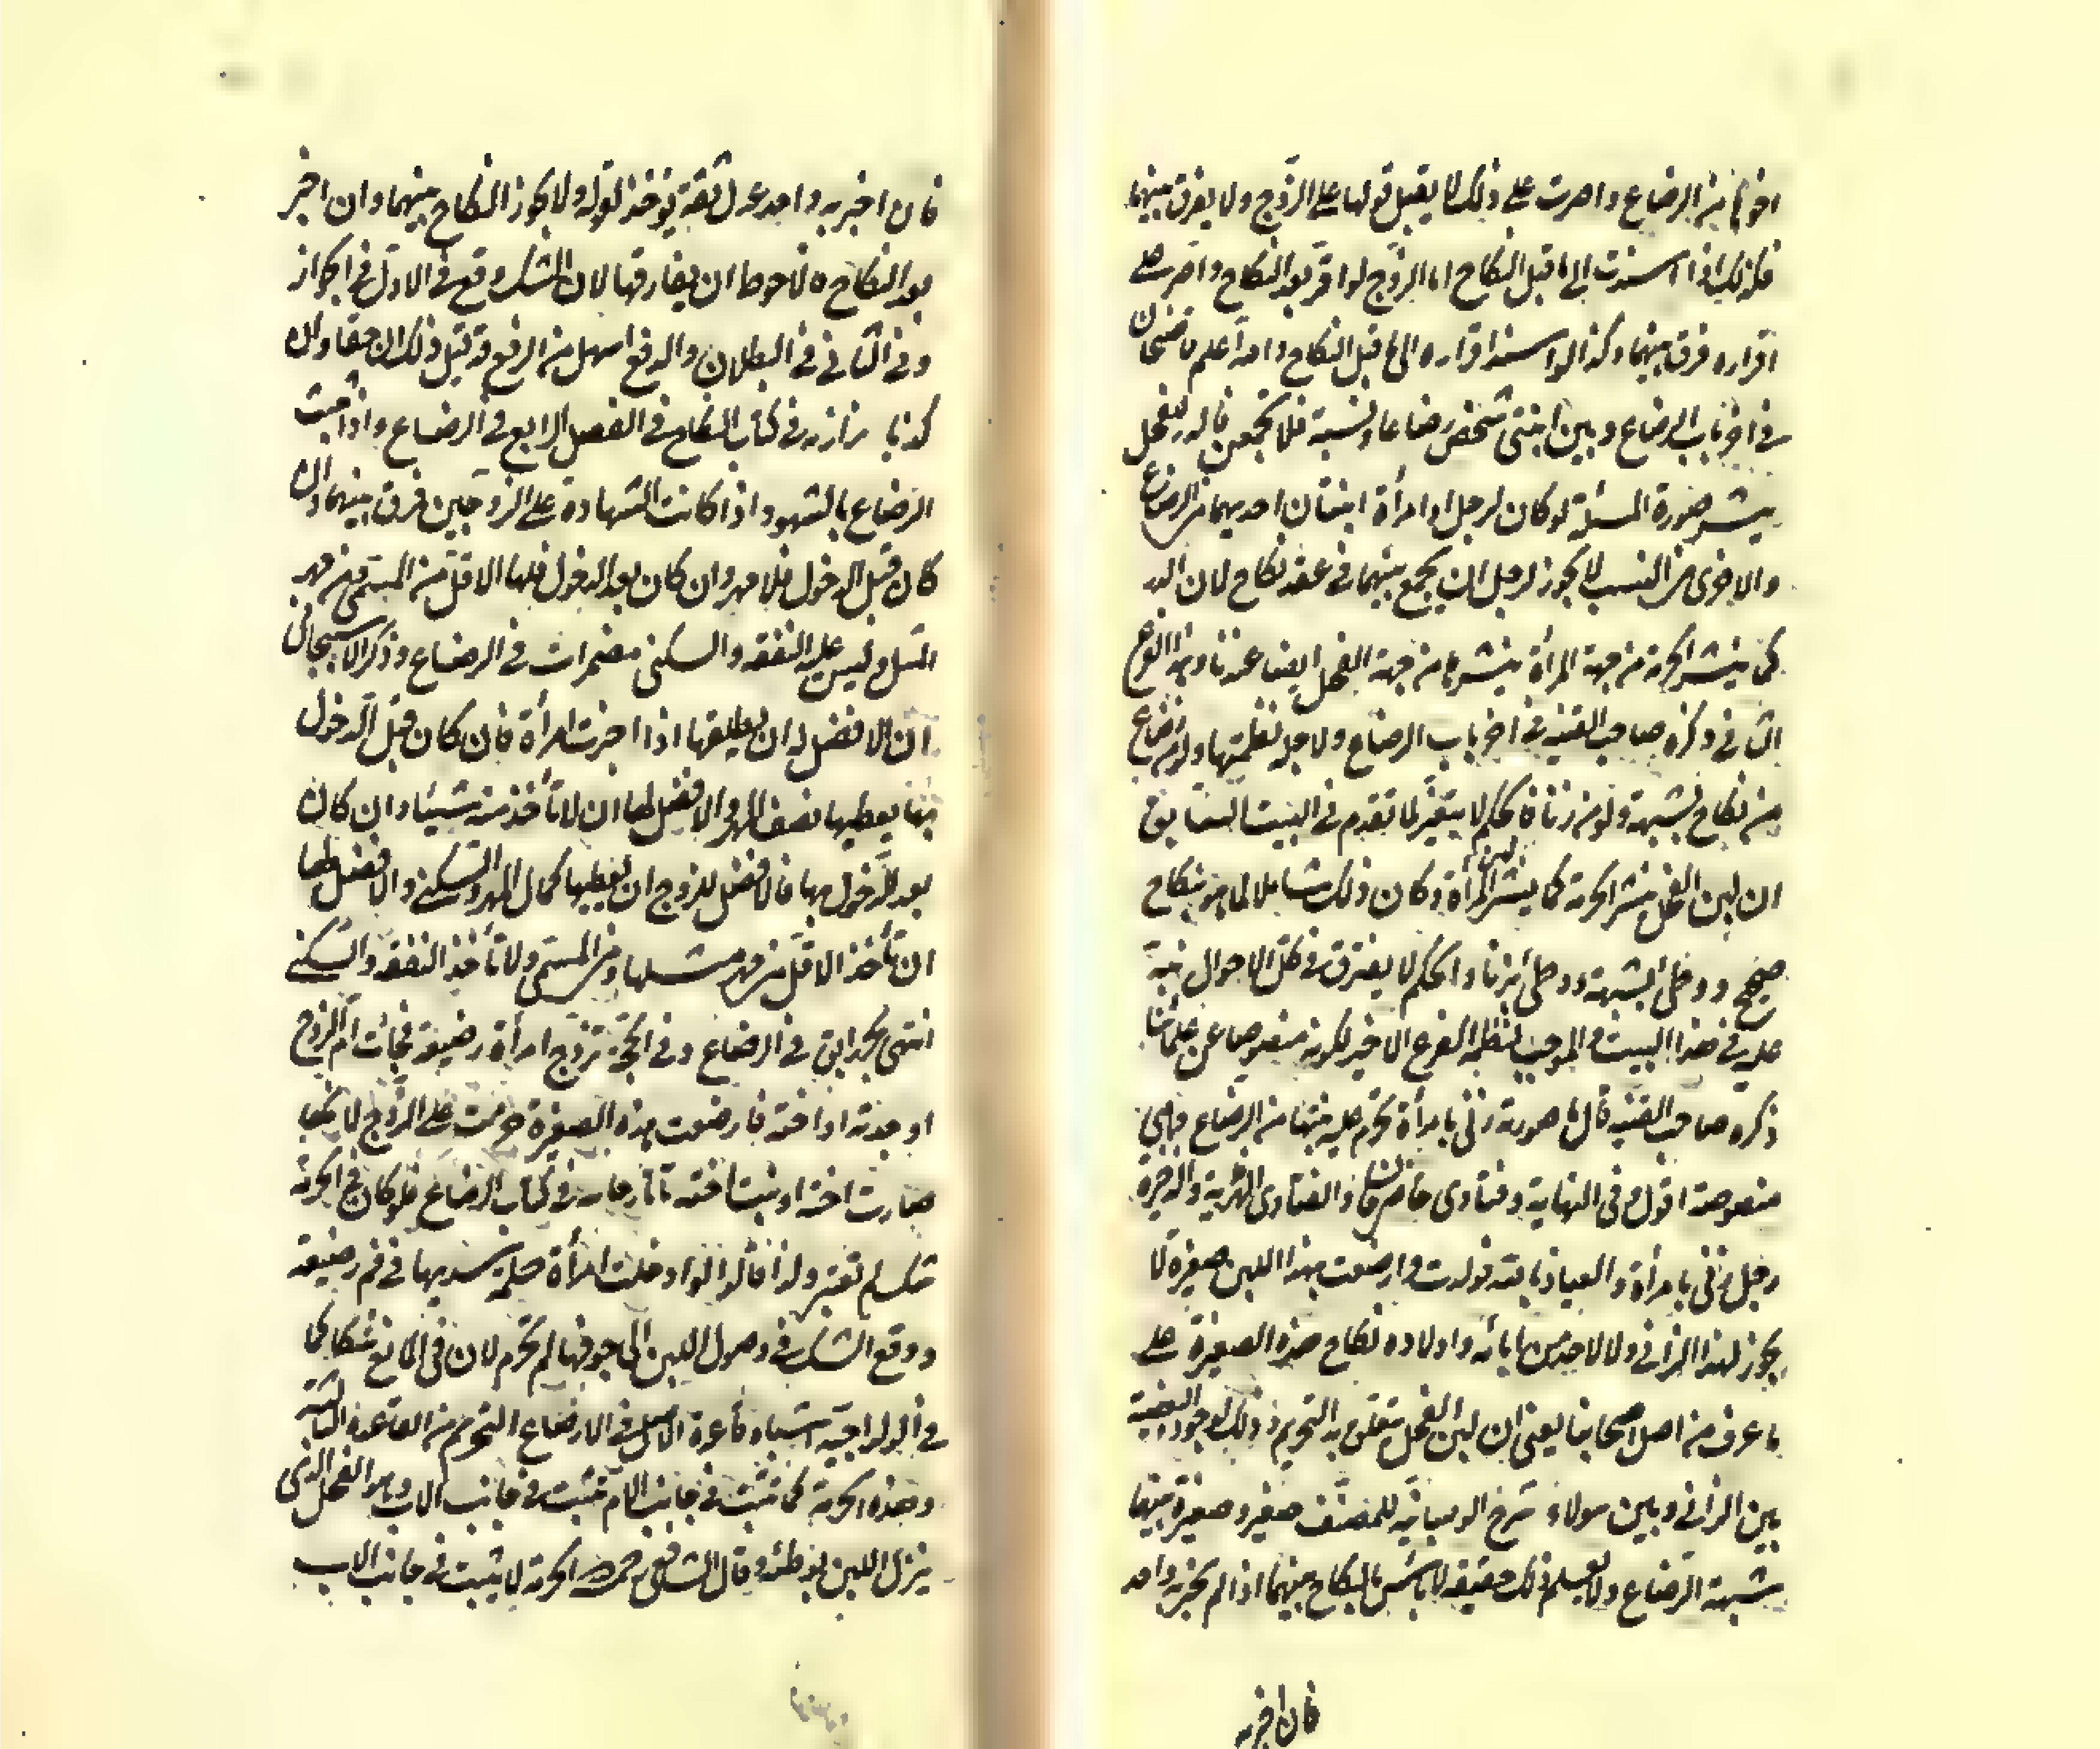 اخوها من الرضاع واصرت على ذلك لا يقبل قولها على الزوج ولا يفرق بينهما
فكذلك اذا اسندت الى ما قبل النكاح اما الزوج لو اقر بعد النكاح واصر على
اقراره فرق بينهما وكذا لو اسند اقراره الى ما قبل النكاح والله اعلم قاضيخان
في اخر باب الرضاع وبين ابنتى شخص رضاعا ونسبة فلا تجمعن فالدر للفحل
ينشر صورة المسئلة لو كان لرجل او امرأة ابنتان احديهما من الرضاع
والاخرى من النسب لا يجوز لرجل ان يجمع بينهما في عقد نكاح لان الدر
كما ينشر الحرمة من جهة المرأة ينشرها من جهة الفحل ايضا عندنا وهذا الفرع
الثاني ذكره صاحب القنية في اخر باب الرضاع ولاجله نظمتها ولو رضاع
من نكاح بشبهة ولو من زنا فالحكم لا يتغير لما تقدم في البيت السابق
ان لبن الفحل ينشر الحرمة كما ينشر لبن المرأة وكان ذلك شاملا لما هو بنكاح
صحيح ووطئ بشبهة ووطئ بزنا والحكم لا يفترق في كل الاحوال نبه
عليه في هذا البيت والموجب لنظمه الفرع الاخير لكونه منصوصا عن علمائنا
ذكره صاحب القنية قال ما صورته زنى بامرأة تحرم عليه بنتها من الرضاع وهي
منصوصة اقول وفي النهاية وفتاوى قاضيخان والفتاوى الظهيرية والذخيرة
رجل زنى بامرأة والعياذ بالله فولدت وارضعت بهذا اللبن صغيرة لا
يجوز لهذا الزاني ولا لاحد من ابائه واولاده نكاح هذه الصغيرة على
ما عرف من اصل اصحابنا يعني ان لبن الفحل يتعلق به التحريم وذلك لوجود البعضية
بين الزاني وبين هولاء شرح الوهبانية للمصنف صغير وصغيرة بينهما
شبهة الرضاع ولا يعلم ذلك حقيقة لا بأس بالنكاح بينهما اذا لم يخبر به واحد
فان اخبر به
فان اخبر به واحد عدل ثقة يؤخذ بقوله ولا يجوز النكاح بينهما وان اخبر
بعد النكاح فالاحوط ان يفارقها لان الشك وقع في الاول في الجواز
وفي الثاني في البطلان والدفع اسهل من الرفع وقد قيل ذلك ان حقا وان
كذبا بزازيه في كتاب النكاح في الفصل الرابع في الرضاع واذا ثبت
الرضاع بالشهود واذا كانت الشهادة على الزوجين فرق بينهما وان
كان قبل الدخول فلا مهر وان كان بعد الدخول فلها الاقل من المسمى ومن مهر
المثل وليس عليه النفقة والسكنى مضمرات في الرضاع وذكر الاسبيجابي
ان الافضل له ان يطلقها اذا اخبرت امرأة فان كان قبل الدخول
بها يعطيها نصف المهر والافضل لها ان لا تأخذ منه شيئا وان كان
بعد الدخول بها فالافضل للزوج ان يعطيها كمال المهر والسكنى والافضل لها
ان تأخذ الاقل من مهر مثلها ومن المسمى ولا تأخذ النفقة والسكنى
انتهى بحر رايق في الرضاع وفي الحجة تزوج امرأة رضيعة فجائت ام الزوج
او جدته او اخته فارضعت هذه الصغيرة حرمت على الزوج لانها
صارت اخته او بنت اخته تاتارخانيه في كتاب الرضاع فلو كان في الحرمة
شك لم تعتبر ولذا قالوا لو ادخلت امرأة حلمة ثديها في فم رضيعة
ووقع الشك في وصول اللبن الى جوفها لم تحرم لان في المانع شكا كما
في الولوالجية اشباه قاعدة الاصل في الارضاع التحريم من القاعدة الثالثة
وهذه الحرمة كما تثبت في جانب الام تثبت في جانب الاب وهو الفحل الذي
ينزل اللبن بوطئه وقال الشافعي رحمه الله الحرمة لا يثبت في جانب الاب